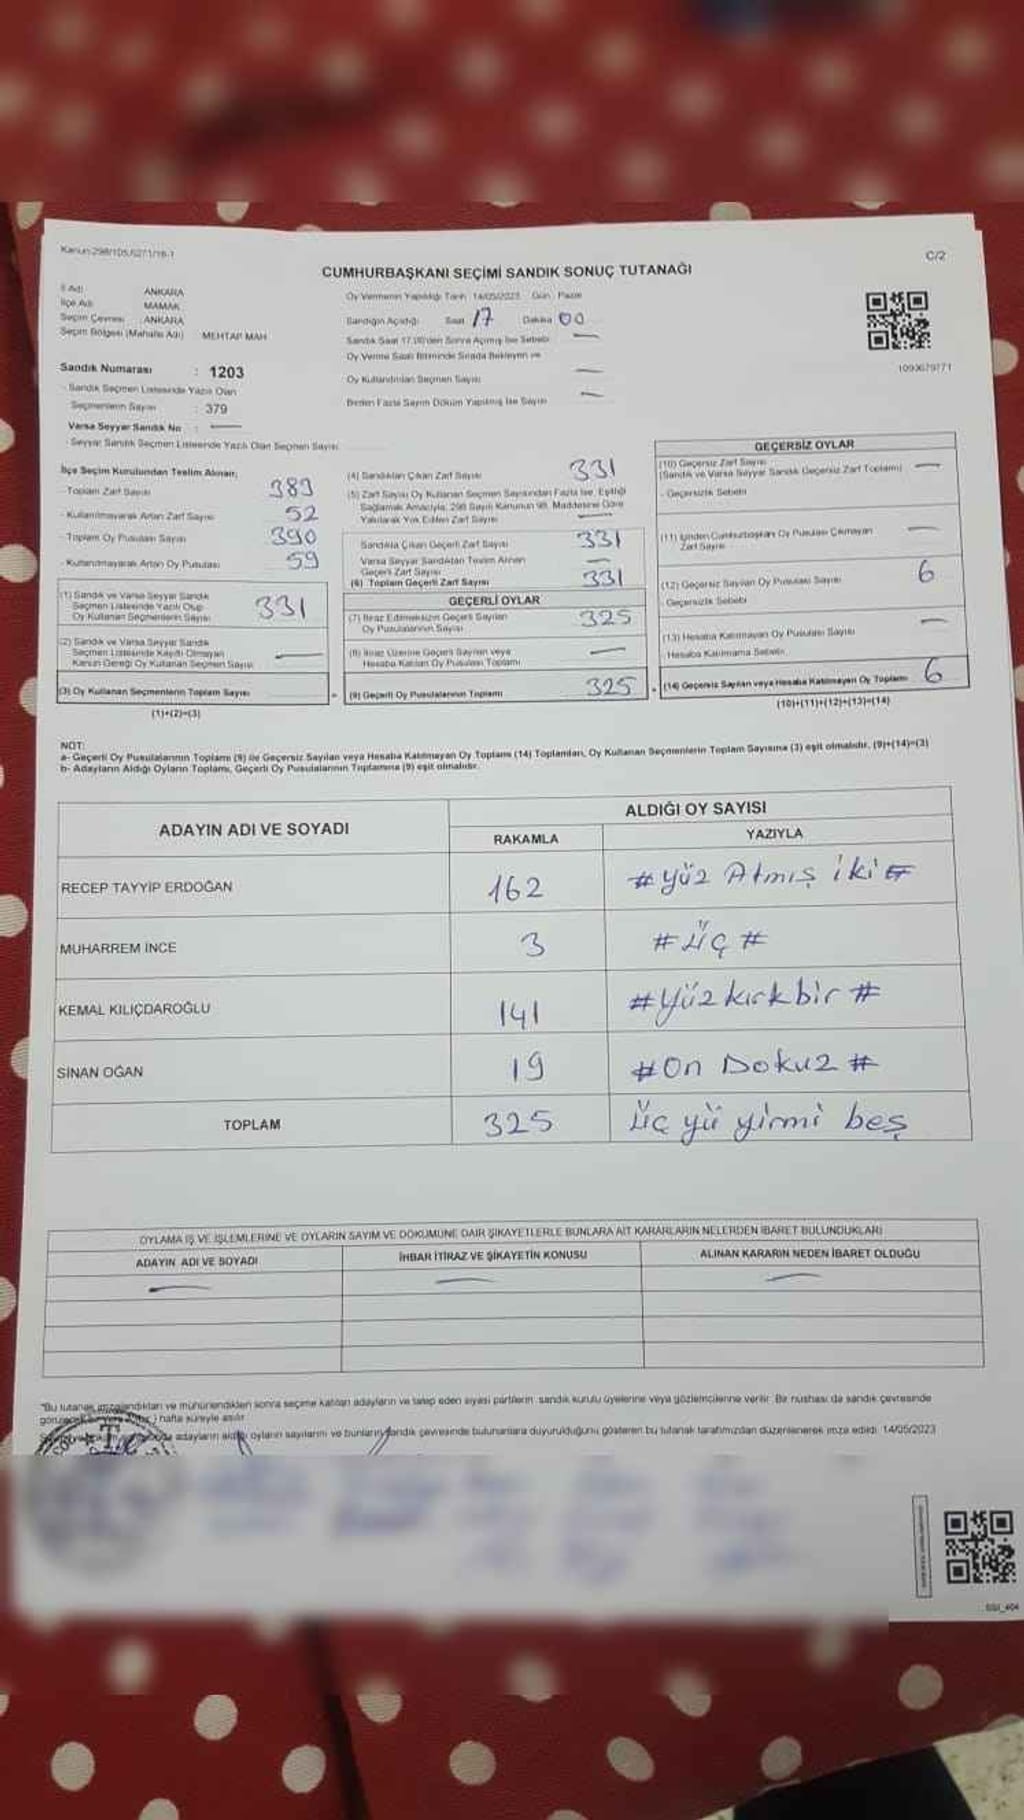 Kanun:298/105,6271/16-1
C/2
CUMHURBAŞKANI SEÇİMİ SANDIK SONUÇ TUTANAĞI
İl Adı: ANKARA
İlçe Adı: MAMAK
Seçim Çevresi: ANKARA
Seçim Bölgesi (Mahalle Adı) MEHTAP MAH
Oy Vermenin Yapıldığı Tarih: 14/05/2023 Gün: Pazar
Sandığın Açıldığı: Saat 17 Dakika 00
Sandık Saat 17.00'den Sonra Açılmış İse Sebebi
Oy Verme Saati Bitiminde Sırada Bekleyen ve
Oy Kullandırılan Seçmen Sayısı —
Birden Fazla Sayım Döküm Yapılmış İse Sayısı —
Sandık Numarası : 1203
- Sandık Seçmen Listesinde Yazılı Olan
Seçmenlerin Sayısı : 379
Varsa Seyyar Sandık No : —
- Seyyar Sandık Seçmen Listesinde Yazılı Olan Seçmen Sayısı:
İlçe Seçim Kurulundan Teslim Alınan;
- Toplam Zarf Sayısı 383
- Kullanılmayarak Artan Zarf Sayısı 52
- Toplam Oy Pusulası Sayısı 390
- Kullanılmayarak Artan Oy Pusulası 59
(1) Sandık ve Varsa Seyyar Sandık
Seçmen Listesinde Yazılı Olup
Oy Kullanan Seçmenlerin Sayısı 331
(2) Sandık ve Varsa Seyyar Sandık
Seçmen Listesinde Kaydı Olmayan
Kanun Gereği Oy Kullanan Seçmen Sayısı —
(3) Oy Kullanan Seçmenlerin Toplam Sayısı
(1)+(2)=(3)
(4) Sandıktan Çıkan Zarf Sayısı 331
(5) Zarf Sayısı Oy Kullanan Seçmen Sayısından Fazla İse, Eşitliği
Sağlamak Amacıyla, 298 Sayılı Kanunun 98. Maddesine Göre
Yakılarak Yok Edilen Zarf Sayısı —
Sandıkta Çıkan Geçerli Zarf Sayısı 331
Varsa Seyyar Sandıktan Teslim Alınan
Geçerli Zarf Sayısı —
(6) Toplam Geçerli Zarf Sayısı 331
GEÇERLİ OYLAR
(7) İtiraz Edilmeksizin Geçerli Sayılan
Oy Pusulalarının Sayısı 325
(8) İtiraz Üzerine Geçerli Sayılan veya
Hesaba Katılan Oy Pusulası Toplamı —
(9) Geçerli Oy Pusulalarının Toplamı 325
1093679771
GEÇERSİZ OYLAR
(10) Geçersiz Zarf Sayısı
(Sandık ve Varsa Seyyar Sandık Geçersiz Zarf Toplamı) —
- Geçersizlik Sebebi
(11) İçinden Cumhurbaşkanı Oy Pusulası Çıkmayan
Zarf Sayısı —
(12) Geçersiz Sayılan Oy Pusulası Sayısı 6
- Geçersizlik Sebebi
(13) Hesaba Katılmayan Oy Pusulası Sayısı —
- Hesaba Katılmama Sebebi
(14) Geçersiz Sayılan veya Hesaba Katılmayan Oy Toplamı 6
(10)+(11)+(12)+(13)=(14)
NOT:
a- Geçerli Oy Pusulalarının Toplamı (9) ile Geçersiz Sayılan veya Hesaba Katılmayan Oy Toplamı (14) Toplamları, Oy Kullanan Seçmenlerin Toplam Sayısına (3) eşit olmalıdır. (9)+(14)=(3)
b- Adayların Aldığı Oyların Toplamı, Geçerli Oy Pusulalarının Toplamına (9) eşit olmalıdır.
ADAYIN ADI VE SOYADI
ALDIĞI OY SAYISI
RAKAMLA YAZIYLA
RECEP TAYYİP ERDOĞAN 162 # Yüz Atmış iki #
MUHARREM İNCE 3 # üç #
KEMAL KILIÇDAROĞLU 141 # Yüz kırk bir #
SİNAN OĞAN 19 # On Dokuz #
TOPLAM 325 üç yü yirmi beş
OYLAMA İŞ VE İŞLEMLERİNE VE OYLARIN SAYIM VE DÖKÜMÜNE DAİR ŞİKAYETLERLE BUNLARA AİT KARARLARIN NELERDEN İBARET BULUNDUKLARI
ADAYIN ADI VE SOYADI İHBAR İTİRAZ VE ŞİKAYETİN KONUSU ALINAN KARARIN NEDEN İBARET OLDUĞU
— — —
*Bu tutanak imzalandıktan ve mühürlendikten sonra seçime katılan adayların ve talep eden siyasi partilerin sandık kurulu üyelerine veya gözlemcilerine verilir. Bir nüshası da sandık çevresinde
hafta süreyle asılır.
adayların aldığı oyların sayılarını ve bunların sandık çevresinde bulunanlara duyurulduğunu gösteren bu tutanak tarafımızdan düzenlenerek imza edildi. 14/05/2023